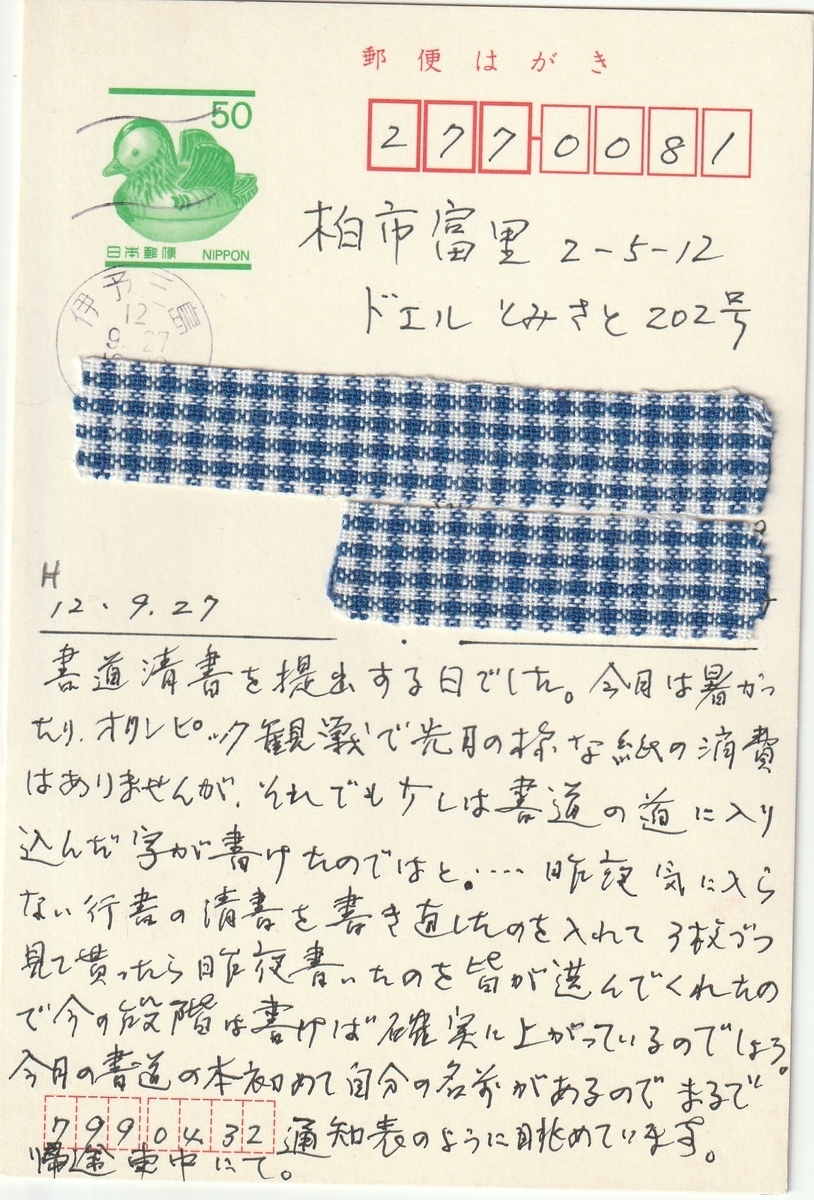 郵便はがき
50
日本郵便 NIPPON
277-0081
伊予三島
12
9.27
柏市富里 2-5-12
ドエルとみさと 202号
H
12.9.27
書道清書を提出する日でした。今月は暑かっ
たり、オリンピック観戦で先月の様な紙の消費
はありませんが、それでも少しは書道の道に入り
込んだ字が書けたのではと。‥‥昨夜気に入ら
ない行書の清書を書き直したのを入れて3枚づつ
見て貰ったら昨夜書いたのを皆が選んでくれたの
で今の段階は書けば確実に上がっているのでしょう。
今月の書道の本初めて自分の名前があるのでまるで
通知表のように眺めています。
7990432
帰途車中にて。